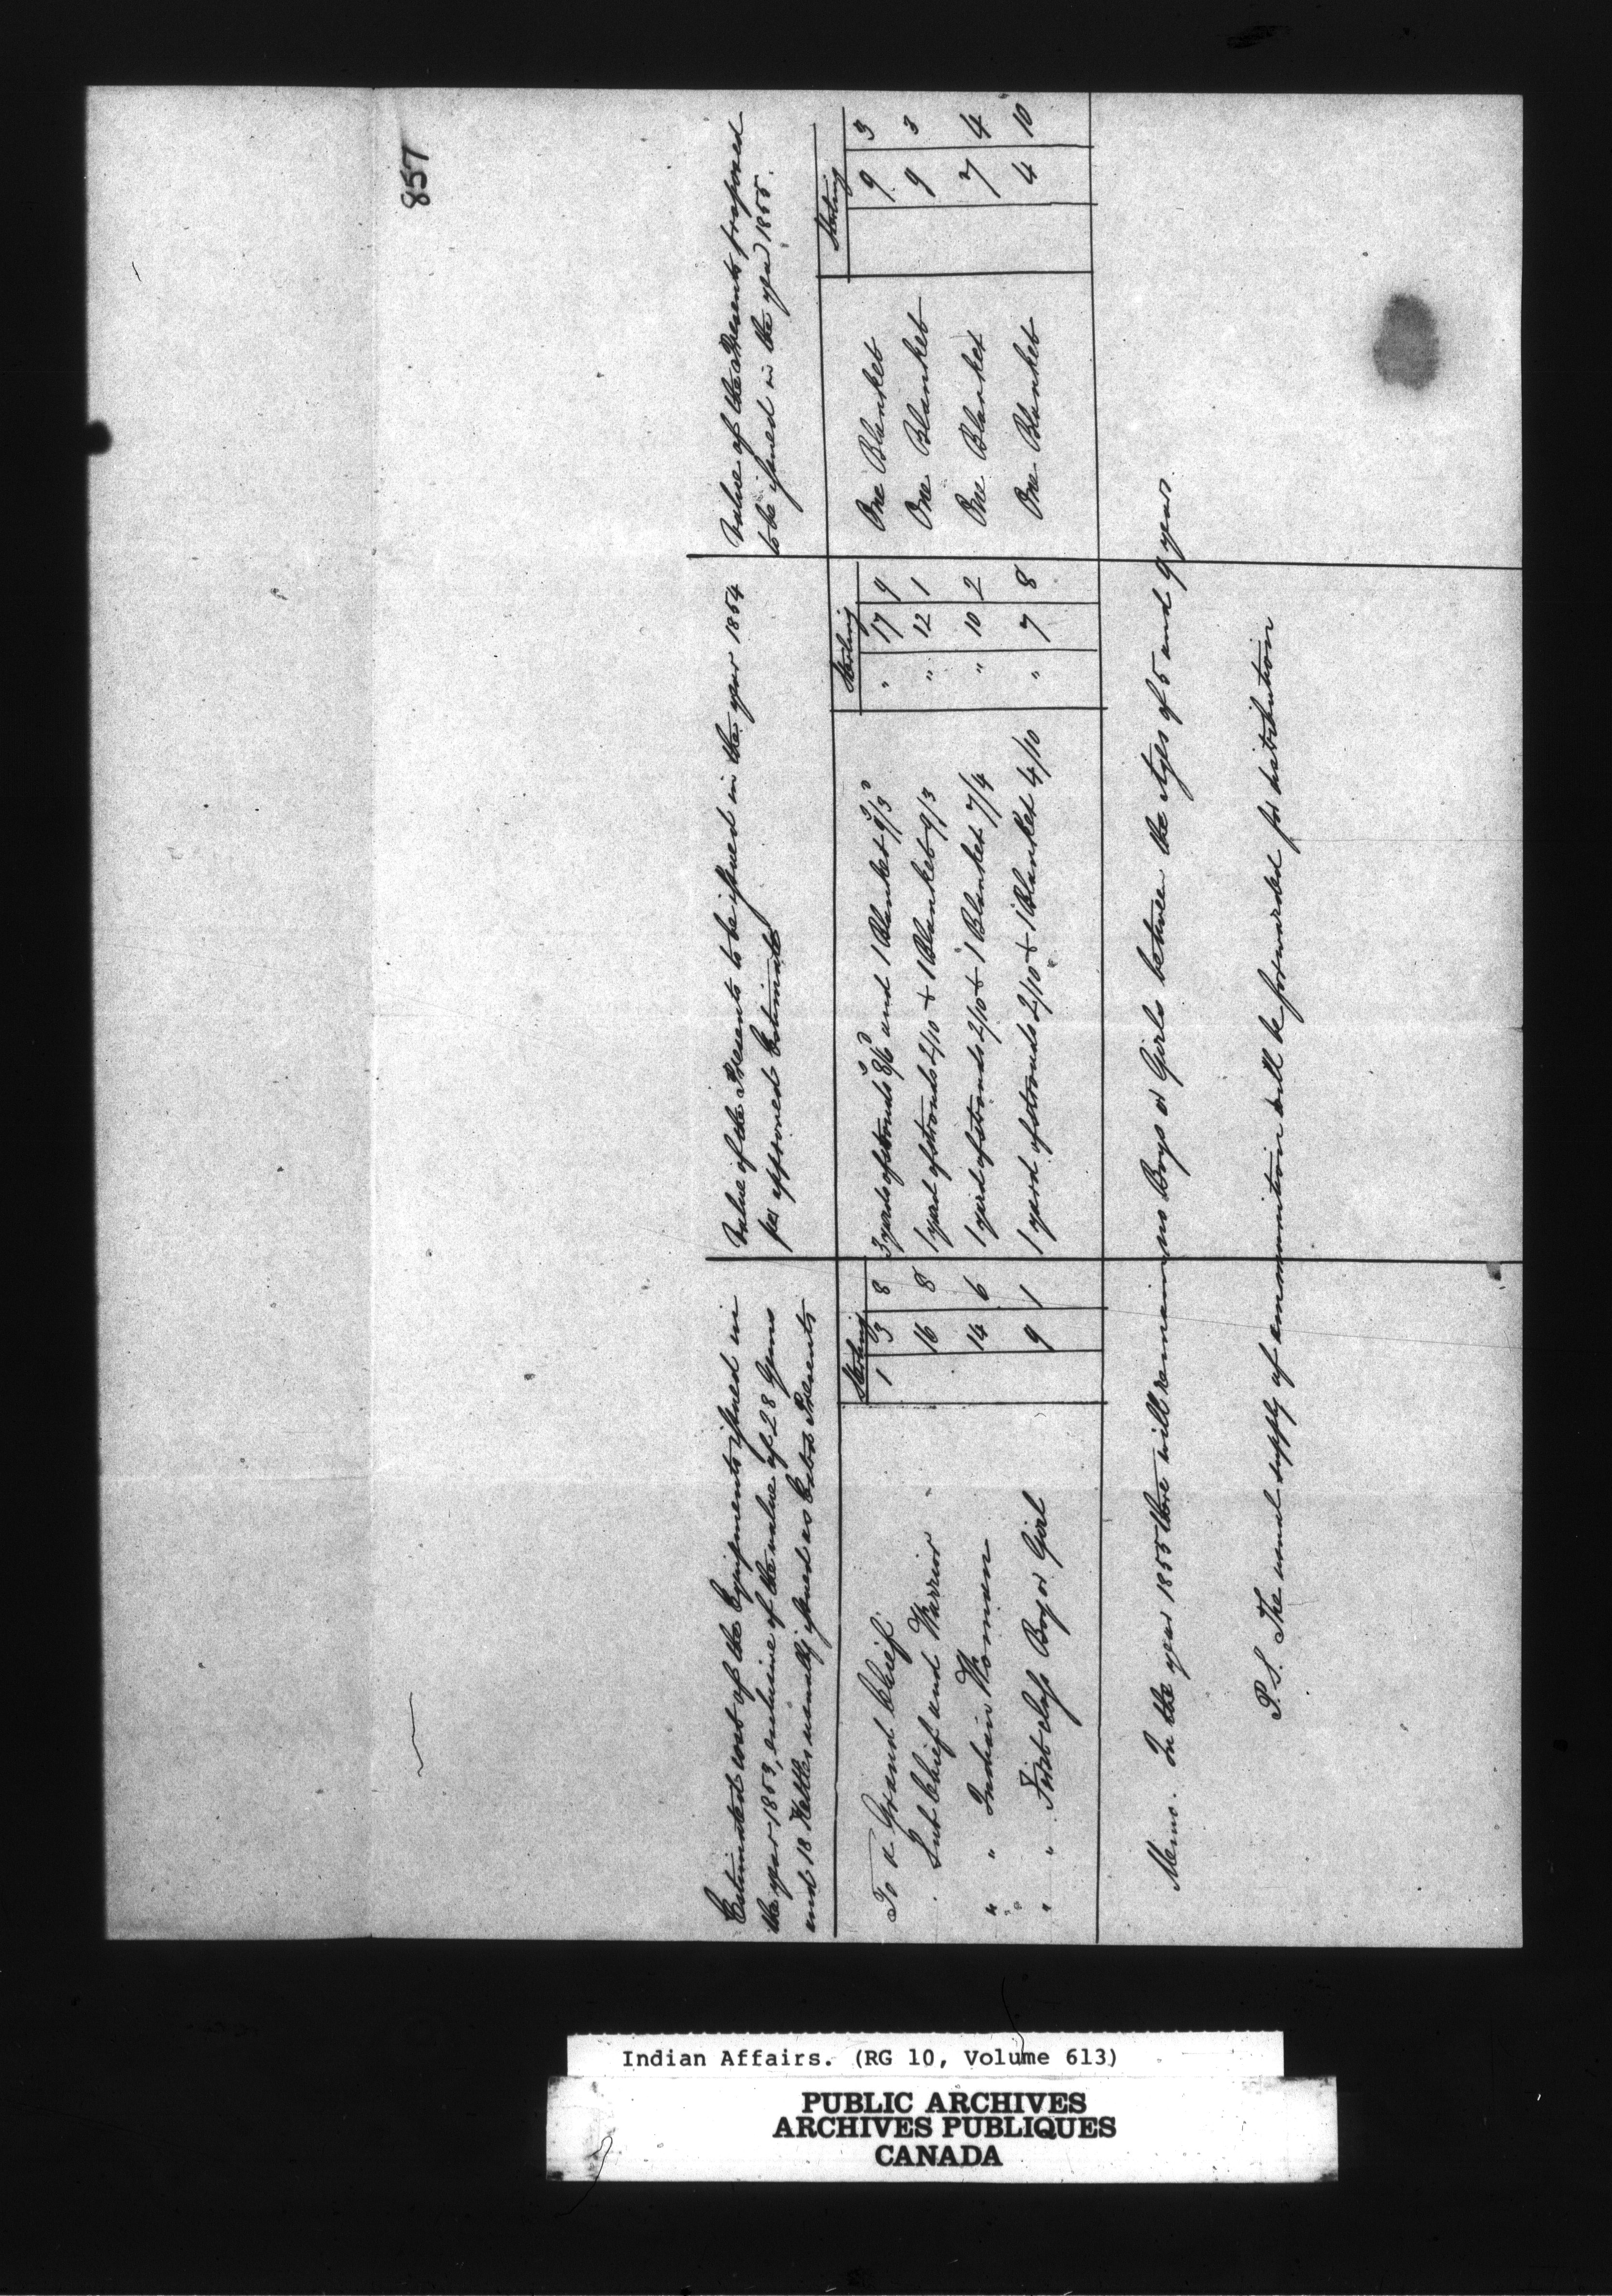 857
Estimated cost of the Equipments issued in
the year 1853, exclusive of the value of 28 Guns
and 18 Kettles usually issued as Extra Presents
Value of the Presents to be issued in the year 1854
per approved Estimate
Value of the Presents proposed
to be issued in the year 1855.
Sterling Sterling Sterling
To a Grand Chief. 1 3 8 3 yards of strouds 8/6 and 1 Blanket 9/3 " 17 9 One Blanket 9 3
Sub Chief and Warrior 16 8 1 yard of strouds 2/10 & 1 Blanket 9/3 " 12 1 One Blanket 9 3
" " Indian Woman 14 6 1 yard of strouds 2/10 & 1 Blanket 7/4 " 10 2 One Blanket 7 4
" " First Class Boy or Girl 9 1 1 yard of strouds 2/10 & 1 Blanket 4/10 " 7 8 One Blanket 4 10
Memo. In the year 1855 there will remain no Boys or Girls between the Ages of 5 and 9 years.
P.S. The usual supply of ammunition will be forwarded for distribution
Indian Affairs. (RG 10, Volume 613)
PUBLIC ARCHIVES
ARCHIVES PUBLIQUES
CANADA